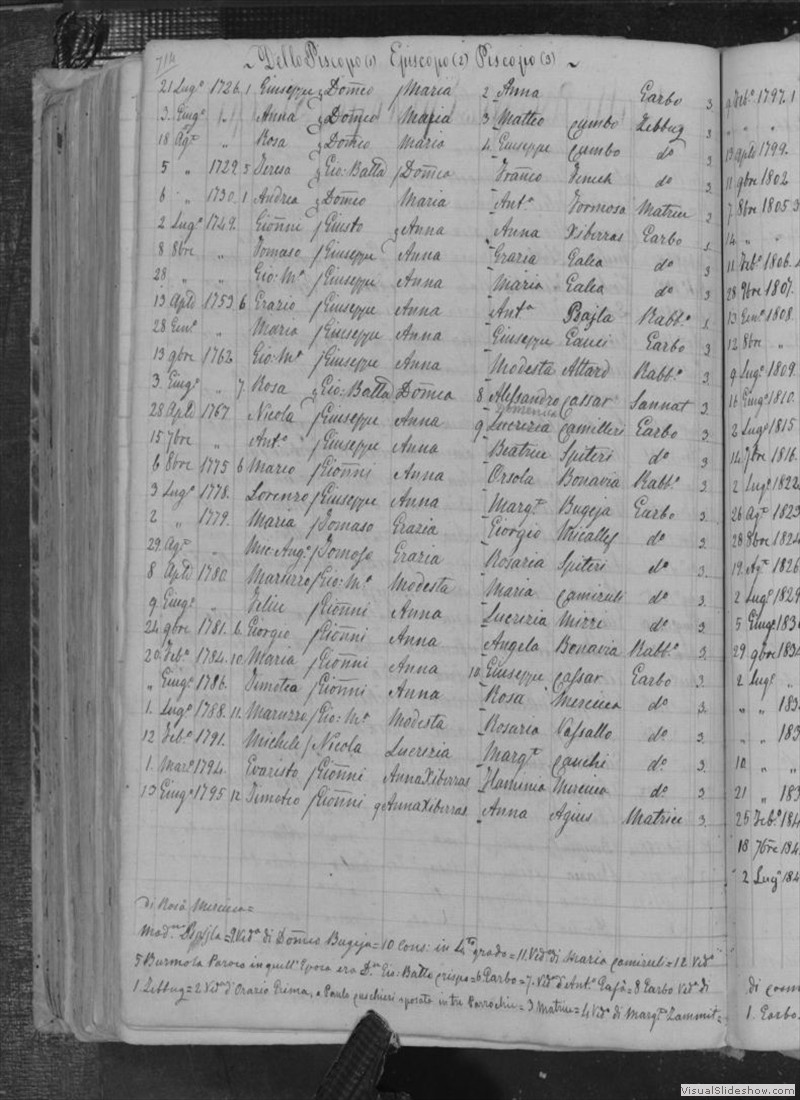 714
~ Dello Piscopo (1) Episcopo (2) Piscopo (3) ~
21 Lugº 1726. 1 Giuseppe Domco Maria 2 Anna Garbo 3.
3. Giugº Anna Domco Maria 3 Matteo Cumbo Zebbug 3
18 Agto „ Rosa Domco Maria 4 Giuseppe Cumbo do 3
5 „ 1729. 5 Teresa Gio: Batta Domca Franco do 3
6 „ 1730. 1 Andrea Domco Maria Anta Formosa Matrice 2
2 Lugº 1749. Gionni Giusto Anna Anna Xiberras Garbo
8 8bre „ Tomaso Giuseppe Anna Grazia Galea do 3
28 „ „ Gio: Ma Giuseppe Anna Maria Galea do 3
13 Aple 1753 6 Grazio Giuseppe Anna Anta Bajla Rabbto
28 Genº „ Maria Giuseppe Anna Giuseppe Cauci Garbo 3
13 9bre 1762 Gio: Ma Giuseppe Anna Modesta Attard Rabbto 3.
3. Giugº „ 7. Rosa Gio: Batta Domca 8 Alessandro Cassar Sannat 3.
28 Aple 1767. Nicola Giuseppe Anna 9 Lucrezia Camilleri Garbo 3.
15 7bre „ Anto Giuseppe Anna Beatrice Spiteri do 3
6 8bre 1775 6 Mario Gionni Anna Orsola Bonavia Rabbto 3.
3 Lugº 1778. Lorenzo Giuseppe Anna Margta Bugeja Garbo 3.
2 „ 1779. Maria Tomaso Grazia Giorgio Micallef do 3.
29. Agto „ Mic: Angº Tomaso Grazia Rosaria Spiteri do 3
8 Aple 1780. Maruzzo Gio: Ma Modesta Maria Camiruli do 3.
9 Giugº „ Felice Gionni Anna Lucrezia Mizzi do 3.
24 9bre 1781. 6. Giorgio Gionni Anna Angela Bonavia Rabbto 3.
20. Febº 1784. 10. Maria Gionni Anna 10 Giuseppe Cassar Garbo 3.
„ Giugº 1786. Timotea Gionni Anna Rosa Mercieca do 3.
1. Lugº 1788. 11. Maruzzo Gio: Ma Modesta Rosaria Vassallo do 3.
12 Febº 1791. Michele Nicola Lucrezia Margta Cauchi do 3.
1. Marzº 1794. Evaristo Gionni Anna Xiberras Flaminia Mercieca do 3
13 Giugº 1795 12 Timoteo Gionni 9 Anna Xiberras Anna Agius Matrice 3.
di Rosa Mercieca =
9 Veda di Domco Bugeja = 10 Cons: in 4to grado = 11. Vedo di Maria Camiruli = 12 Vedo
5 Burmola Paroco in quell'Epoca era Dn Gio: Batta Crispo = 6 Garbo = 7. Veda d'Anto = 8 Garbo Vedo di
1 Zebbug = 2 Veda d'Orazio Prima, e Paulo sposato in tre Parrochie = 3 Matrice = 4 Vedo di Margta Zammit =
9 Febº 1797. 1
„ „ „
13 Aple 1799.
11 9bre 1802
7 8bre 1805 3
14 „ „
11 Febº 1806.
28 7bre 1807.
13 Genº 1808.
12 8bre „
9 Lugº 1809.
16 Giugº 1810.
2 Lugº 1815
14 7bre 1816.
2 Lugº 1822
26 Agto 1823
28 8bre 1824
19. Agto 1826
2 Lugº 1829
5 Giugº 183
29 9bre 183
2 Lugº „
„ „ 183
„ „ 183
10 „ „
21 „ 183
25 Febº 184
18 7bre 184
2 Lugº 184
1. Garbo
VisualSlideshow.com